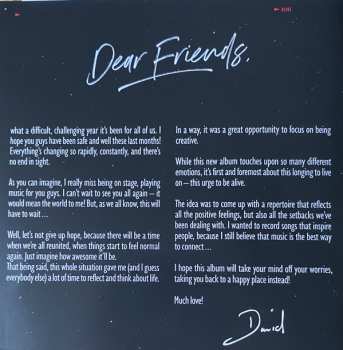 Dear Friends,
what a difficult, challenging year it's been for all of us. I
hope you guys have been safe and well these last months!
Everything's changing so rapidly, constantly, and there's
no end in sight.
As you can imagine, I really miss being on stage, playing
music for you guys. I can't wait to see you all again – it
would mean the world to me! But, as we all know, this will
have to wait . . .
Well, let's not give up hope, because there will be a time
when we're all reunited, when things start to feel normal
again. Just imagine how awesome it'll be.
That being said, this whole situation gave me (and I guess
everybody else) a lot of time to reflect and think about life.
In a way, it was a great opportunity to focus on being
creative.
While this new album touches upon so many different
emotions, it's first and foremost about this longing to live
on – this urge to be alive.
The idea was to come up with a repertoire that reflects
all the positive feelings, but also all the setbacks we've
been dealing with. I wanted to record songs that inspire
people, because I still believe that music is the best way
to connect . . .
I hope this album will take your mind off your worries,
taking you back to a happy place instead!
Much love!
David